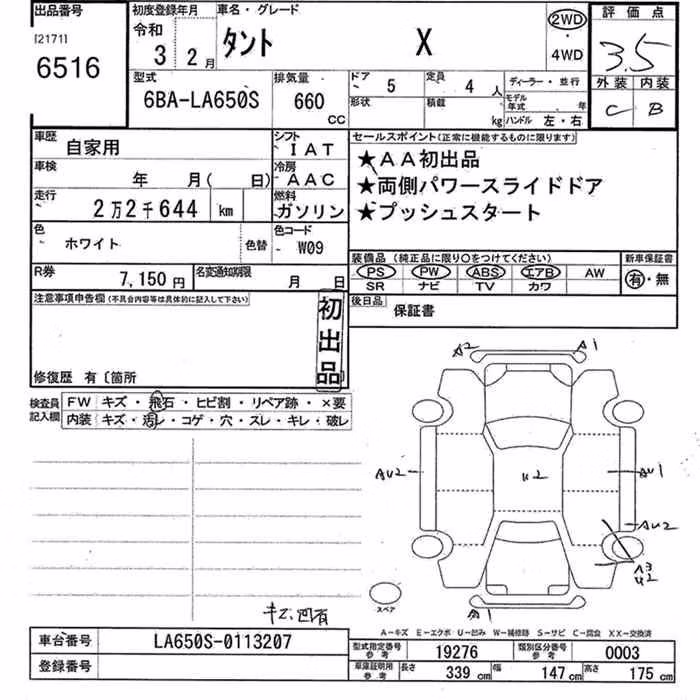 出品番号
[2171]
6516
初度登録年月
令和
3 2月
車名・グレード
タント X
2WD
・
4WD
評価点
3.5
外装 内装
C B
型式
6BA-LA650S
排気量
660
CC
ドア 5
形状
定員 4 人
積載 kg
ディーラー・並行
モデル年式 年
ハンドル 左・右
車歴 自家用
シフト IAT
車検 年 月( 日)
冷房 AAC
走行 2万2千644 km
燃料 ガソリン
色 ホワイト 色替
色コード W09
R券 7,150円
名変通知期限 月 日
セールスポイント(正常に機能するものに限ります)
★AA初出品
★両側パワースライドドア
★プッシュスタート
装備品(純正品に限り○をつけてください) 新車保証書
PS PW ABS エアB AW 有・無
SR ナビ TV カワ
後日品 保証書
注意事項申告欄(不具合内容等は具体的に記入して下さい)
初出品
修復歴 有〔箇所
検査員記入欄
FW キズ・飛石・ヒビ割・リペア跡・×要
内装 キズ・汚レ・コゲ・穴・スレ・キレ・破レ
A2 A1
AU2 U2 AU1
AU2
A3
U2
A1
スペア
キズ、凹有
A-キズ E-エクボ U-凹み W-補修跡 S-サビ C-腐食 XX-交換済
車台番号 LA650S-0113207
登録番号
型式指定番号 参考 19276
類別区分番号 参考 0003
車庫証明用 参考 長さ 339 cm 幅 147 cm 高さ 175 cm